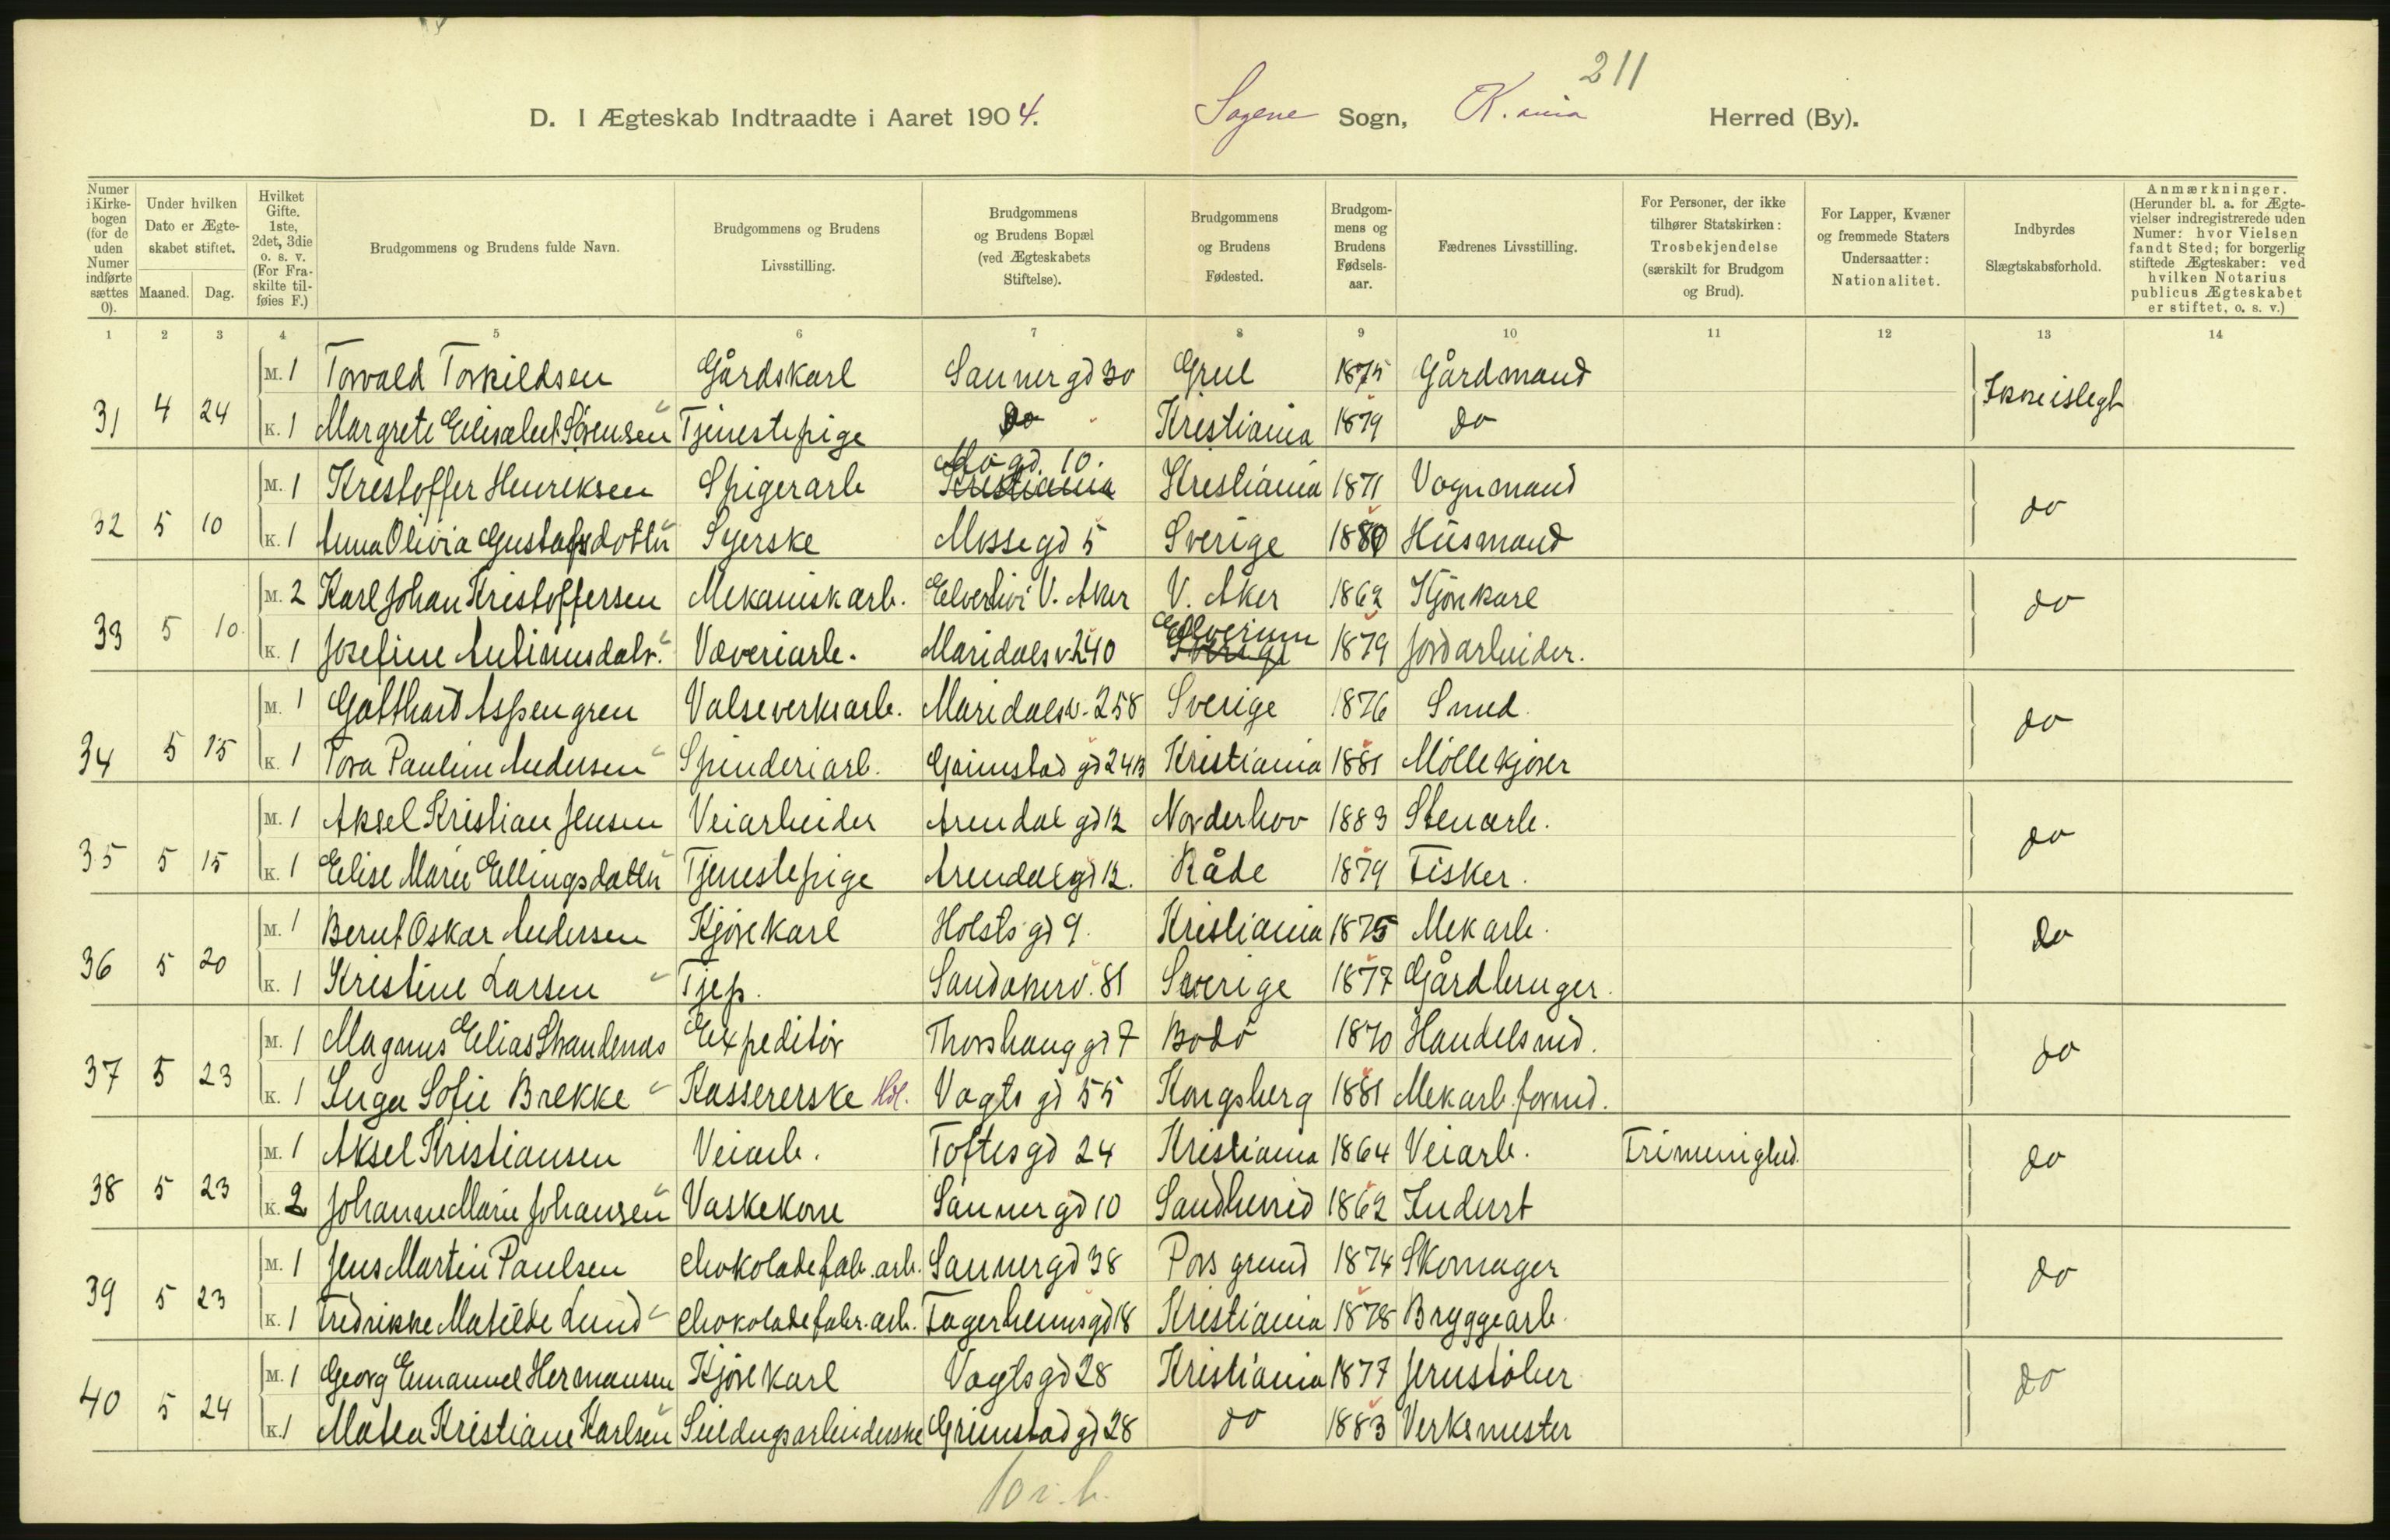 211
D. I Ægteskab Indtraadte i Aaret 1904. Sagene Sogn, K.ania Herred (By).
Numer i Kirkebogen (for de uden Numer indførte sættes 0). Under hvilken Dato er Ægteskabet stiftet. Maaned. Dag. Hvilket Gifte. 1ste, 2det, 3die o. s. v. (For Fraskilte tilføies F.) Brudgommens og Brudens fulde Navn. Brudgommens og Brudens Livsstilling. Brudgommens og Brudens Bopæl (ved Ægteskabets Stiftelse). Brudgommens og Brudens Fødested. Brudgommens og Brudens Fødselsaar. Fædrenes Livsstilling. For Personer, der ikke tilhører Statskirken: Trosbekjendelse (særskilt for Brudgom og Brud). For Lapper, Kvæner og fremmede Staters Undersaatter: Nationalitet. Indbyrdes Slægtskabsforhold. Anmærkninger. (Herunder bl. a. for Ægtevielser indregistrerede uden Numer: hvor Vielsen fandt Sted; for borgerlig stiftede Ægteskaber: ved hvilken Notarius publicus Ægteskabet er stiftet, o. s. v.)
1 2 3 4 5 6 7 8 9 10 11 12 13 14
M. 1 Torvald Torkildsen Gårdskarl Sannergd 30 Grue 1875 Gårdmand
31 4 24 K. 1 Margrete Elisabet Sørensen Tjenestepige Do Kristiania 1879 do Ikke i slegt
Mogd. 10.
M. 1 Kristoffer Henriksen Spigerarb Kristiania Kristiania 1871 Vognmand
32 5 10 K. 1 Anna Olivia Gustafsdotter Syerske Mossegd 5 Sverige 1880 Husmand do
M. 2 Karl Johan Kristoffersen Mekaniskarb. V. Aker V. Aker 1862 Kjørekarl
Elverum
33 5 10. K. 1 Josefine Antinusdatr. Væveriarb. Maridalsv. 240 Sverige 1879 Jordarbeider. do
M. 1 Gotthard Aspengren Valseverksarb. Maridalsv. 258 Sverige 1876 Smed
34 5 15 K. 1 Tora Pauline Andersen Spinderiarb. Grimstad gd 24B Kristiania 1881 Møllekjører do
M. 1 Aksel Kristian Jensen Veiarbeider Arendal gd 12 Norderhov 1883 Stenarb.
35 5 15 K. 1 Elise Marie Ellingsdatter Tjenestepige Arendal gd 12. Råde 1879 Fisker. do
M. 1 Bernt Oskar Andersen Kjørekarl Holsts gd 9. Kristiania 1875 Mek arb.
36 5 20 K. 1 Kristine Larsen Tjep. Sandakerv. 81 Sverige 1877 Gårdbruger. do
M. 1 Magnus Elias Strandenæs Expeditør Thorshaug gd 7 Bodø 1870 Handelsmd.
37 5 23 K. 1 Inga Sofie Brekke Kassererske Hdl. Vogts gd 55 Kongsberg 1881 Mekarb. formd. do
M. 1 Aksel Kristiansen Veiarb. Toftesgd 24 Kristiania 1864 Veiarb. Frimenighed.
38 5 23 K. 2 Johanne Marie Johansen Vaskekone Sannergd 10 Sandherred 1862 Inderst do
M. 1 Jens Martin Paulsen Chokoladefab. arb. Sannergd 38 Porsgrund 1874 Skomager
39 5 23 K. 1 Fredrikke Matilde Lund Chokoladefabr. arb. Fagerheimsgd 18 Kristiania 1878 Bryggearb. do
M. 1 Georg Emanuel Hermansen Kjørekarl Vogtsgd 28 Kristiania 1877 Jernstøber
40 5 24 K. 1 Matea Kristiane Karlsen Seildugsarbeiderske Grimstad gd 28 do 1883 Verksmester do